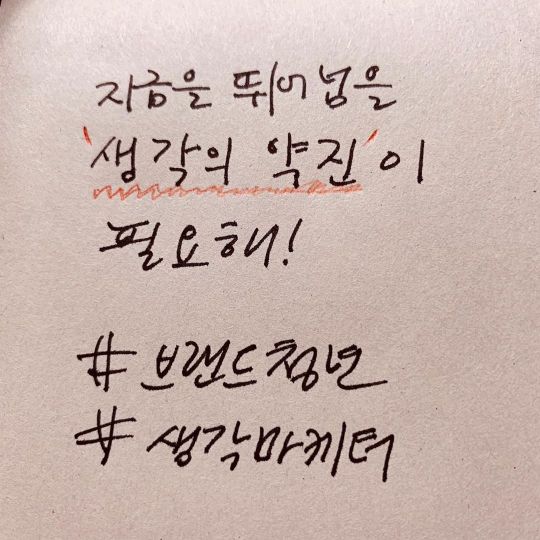 지금을 뛰어넘을
'생각의 약진'이
필요해!
# 브랜드청년
# 생각마케터